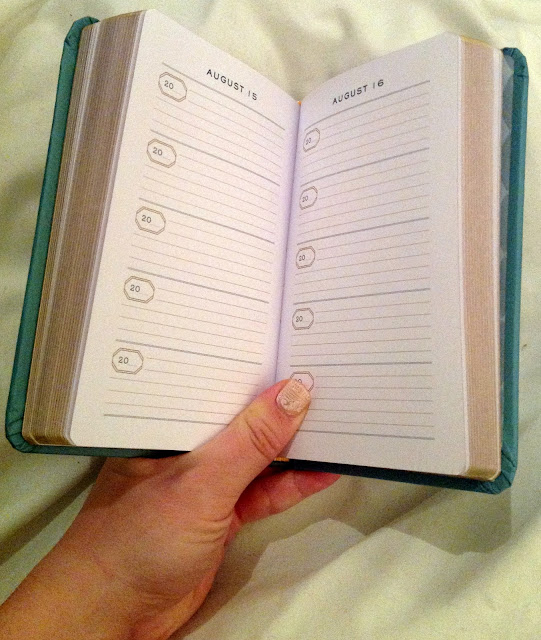 AUGUST 15
20
20
20
20
20
AUGUST 16
20
20
20
20
20